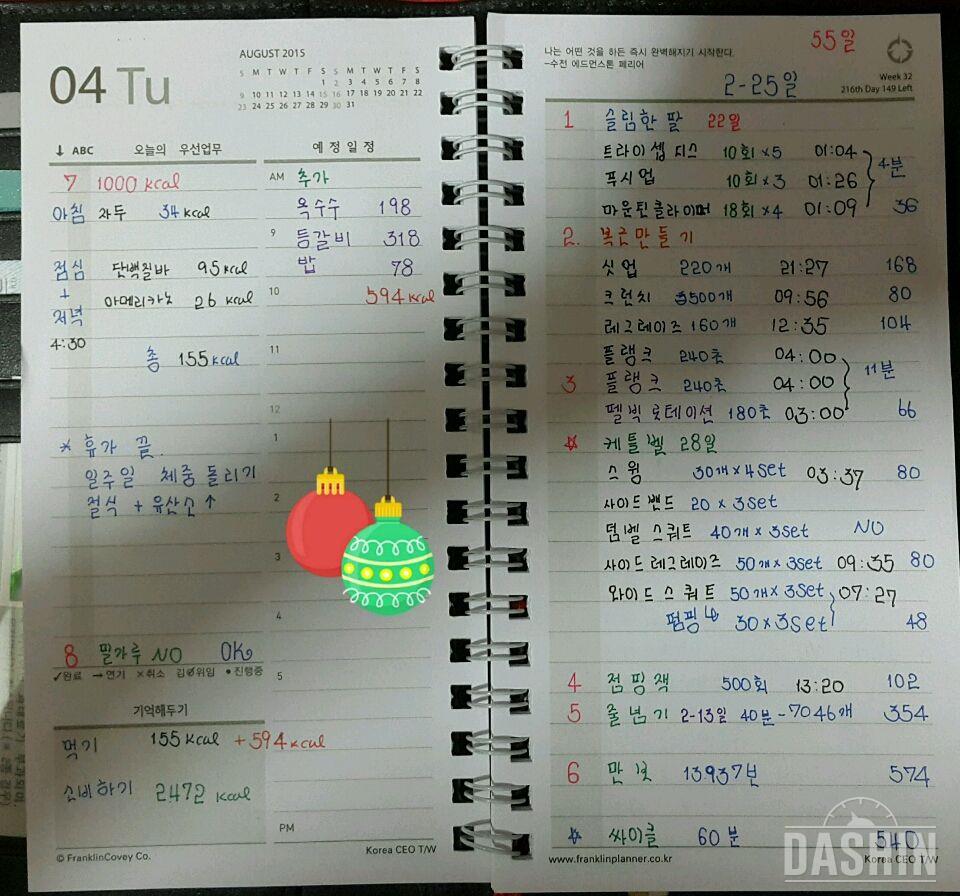 04 Tu
AUGUST 2015
S M T W T F S
1 2 3 4 5 6 7 8
9 10 11 12 13 14 15 16 17 18 19 20 21 22
23 24 25 26 27 28 29 30 31
↓ ABC 오늘의 우선업무
7 1000 kcal
아침 자두 34 kcal
점심 단백질바 95 kcal
+ 아메리카노 26 kcal
저녁
4:30
총 155 kcal
* 휴가 끝.
일주일 체중 돌리기
절식 + 유산소 ↑
8 밀가루 NO OK
✓완료 →연기 ×취소 위임 •진행중
기억해두기
먹기 155 kcal + 594 kcal
소비하기 2472 kcal
© FranklinCovey Co.
예정일정
AM 추가
옥수수 198
9 등갈비 318
밥 78
10 594 kcal
11
12
1
2
3
4
5
PM
Korea CEO T/W
나는 어떤 것을 하든 즉시 완벽해지기 시작한다.
-수전 에드먼스톤 페리어
55일
2-25일
Week 32
216th Day 149 Left
1 슬림한 팔 22일
트라이셉 딥스 10회 ×5 01:04
푸시업 10회 ×3 01:26 4분
마운틴클라이머 18회 ×4 01:09 36
2. 복근만들기
싯업 220개 21:27 168
크런치 500개 09:56 80
레그레이즈 160개 12:35 104
플랭크 240초 04:00
3 플랭크 240초 04:00 11분
펠빅 로테이션 180초 03:00 66
☆ 케틀벨 28일
스윙 30개 × 4set 03:37 80
사이드 밴드 20 × 3set
덤벨 스쿼트 40개 × 3set NO
사이드 레그레이즈 50개 × 3set 09:35 80
와이드 스쿼트 50개 × 3set 07:27
펌핑 ↳ 30 × 3set 48
4 점핑잭 500회 13:20 102
5 줄넘기 2-13일 40분 - 7046개 354
6 만보 13937보 574
☆ 싸이클 60분 540
www.franklinplanner.co.kr
Korea CEO T/W
DASHIN